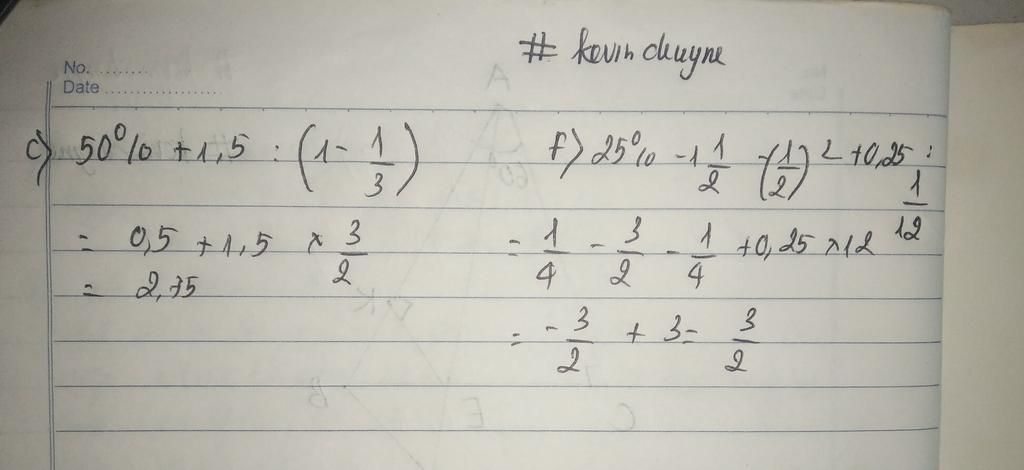 # kevin chuyne
No. ........
Date ....................
c) 50% + 1,5 : (1 - 1/3)
= 0,5 + 1,5 × 3/2
= 2,75
f) 25% - 1 1/2 - (1/2)² + 0,25 : 1/12
= 1/4 - 3/2 - 1/4 + 0,25 × 12
= -3/2 + 3 = 3/2